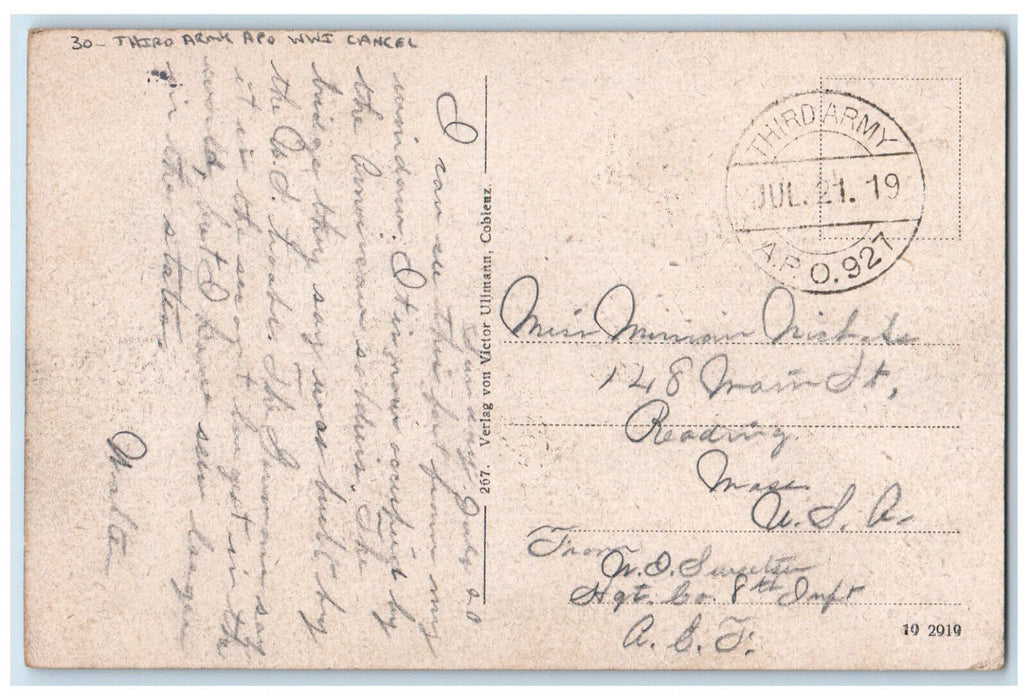 30- THIRD ARMY APO WWI CANCEL
THIRD ARMY
JUL. 21. 19
A.P.O. 927
Sunday July 20
I can see this fort from my
window. It is now occupied by
the American soldiers. The
bridge they say was built by
the U.S. before. The Germans say
it is the largest in the
world, but I have seen larger
in the states.
Walter
267. Verlag von Victor Ullmann, Coblenz.
Miss Miriam Nichols
148 Main St,
Reading
Mass
U. S. A.
From
W. D. Sweetser
Hqt. Co. 8th Inft
A. E. F.
19 2919